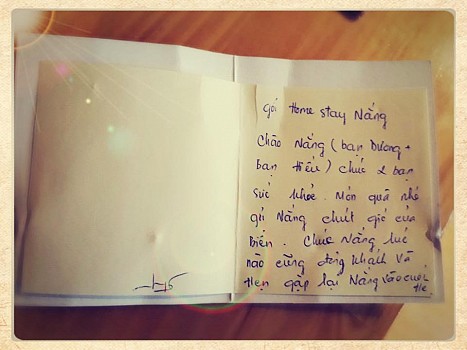 gởi Home stay Nắng
Chào Nắng (bạn Dương +
bạn Hiếu) chúc 2 bạn
sức khỏe. Món quà nhỏ
gửi Nắng chút gió của
biển. Chúc Nắng lúc
nào cũng đông khách và
Hẹn gặp lại Nắng vào cuối
Hè.